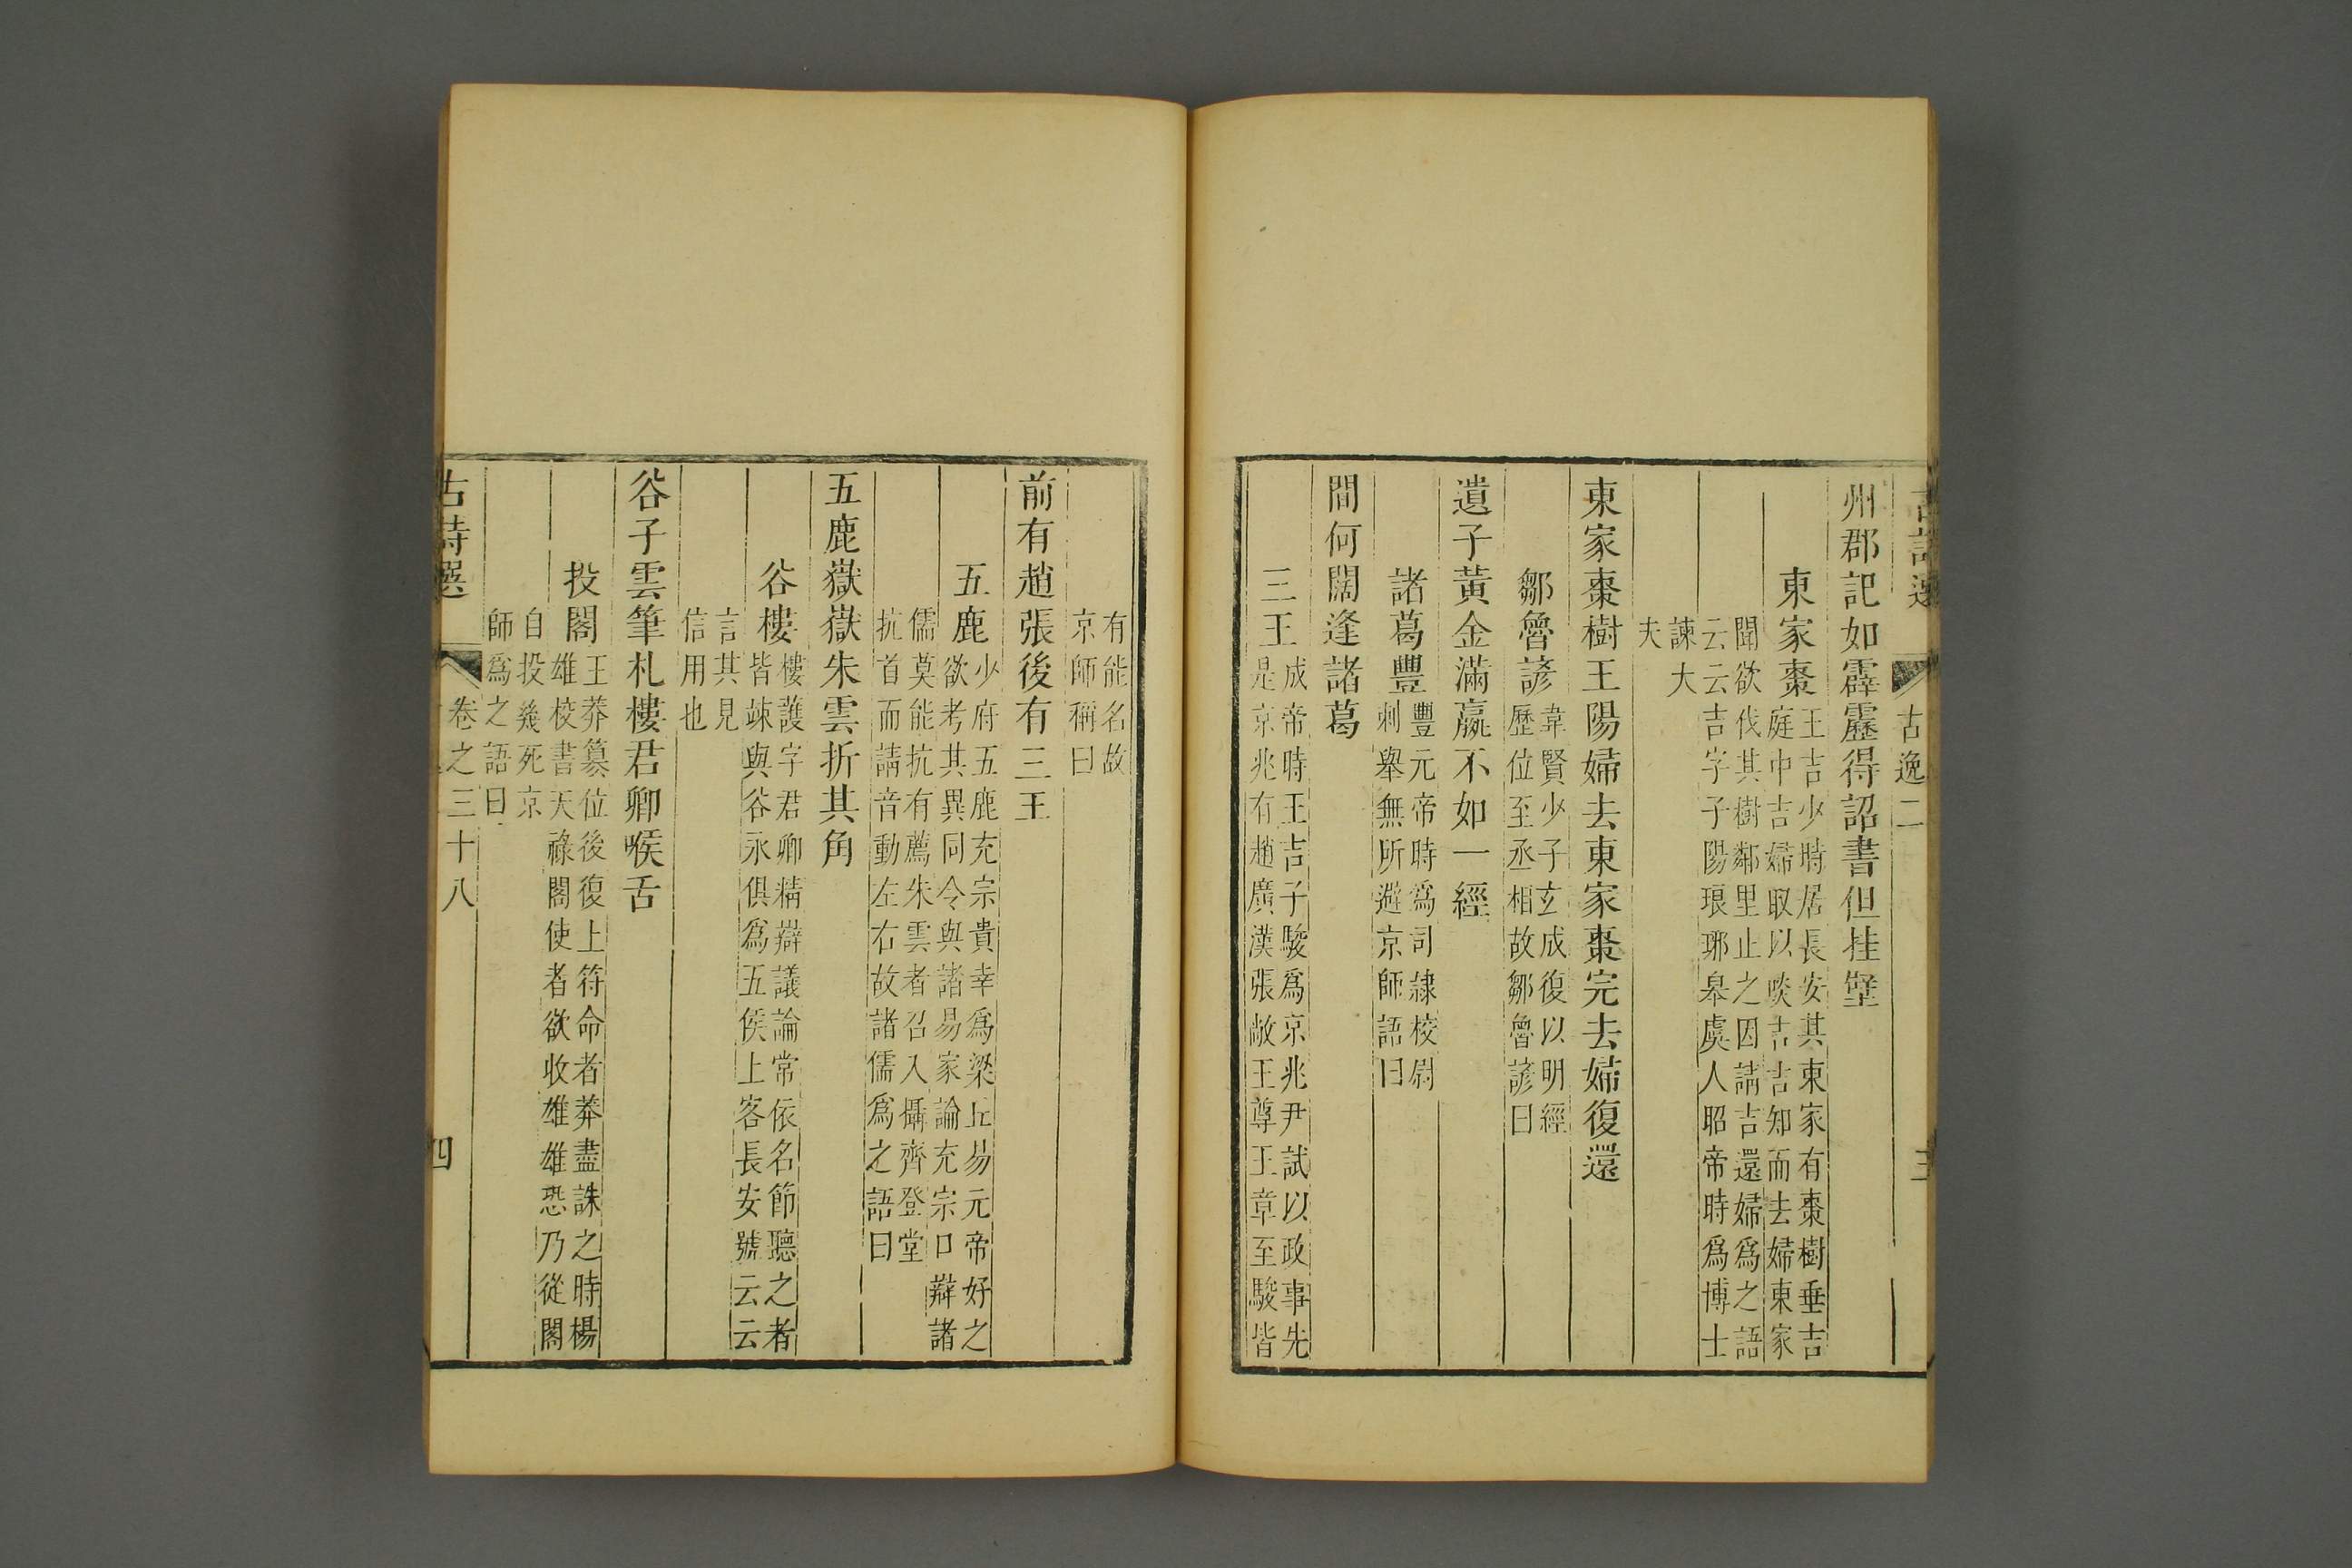 古詩選 古逸二 三
州郡記如霹靂得詔書但挂壁
東家棗
王吉少時居長安其東家有棗樹垂吉
庭中吉婦取以啖吉吉知而去婦東家
聞欲伐其樹鄰里止之因請吉還婦爲之語
云云吉字子陽琅琊皋虞人昭帝時爲博士
諫大
夫
東家棗樹王陽婦去東家棗完去婦復還
鄒魯諺
韋賢少子玄成復以明經
歷位至丞相故鄒魯諺曰
遺子黃金滿籝不如一經
諸葛豐
豐元帝時爲司隷校尉
刺舉無所避京師語曰
間何闊逢諸葛
三王
成帝時王吉子駿爲京兆尹試以政事先
是京兆有趙廣漢張敞王尊王章至駿皆
有能名故
京師稱曰
前有趙張後有三王
五鹿
少府五鹿充宗貴幸爲梁丘易元帝好之
欲考其異同令與諸易家論充宗口辯諸
儒莫能抗有薦朱雲者召入攝齊登堂
抗首而請音動左右故諸儒爲之語曰
五鹿嶽嶽朱雲折其角
谷樓
樓護字君卿精辯議論常依名節聽之者
皆竦與谷永俱爲五侯上客長安號云云
言其見
信用也
谷子雲筆札樓君卿喉舌
投閣
王莽篡位後復上符命者莽盡誅之時楊
雄校書天祿閣使者欲收雄雄恐乃從閣
自投幾死京
師爲之語曰
古詩選 卷之三十八 四